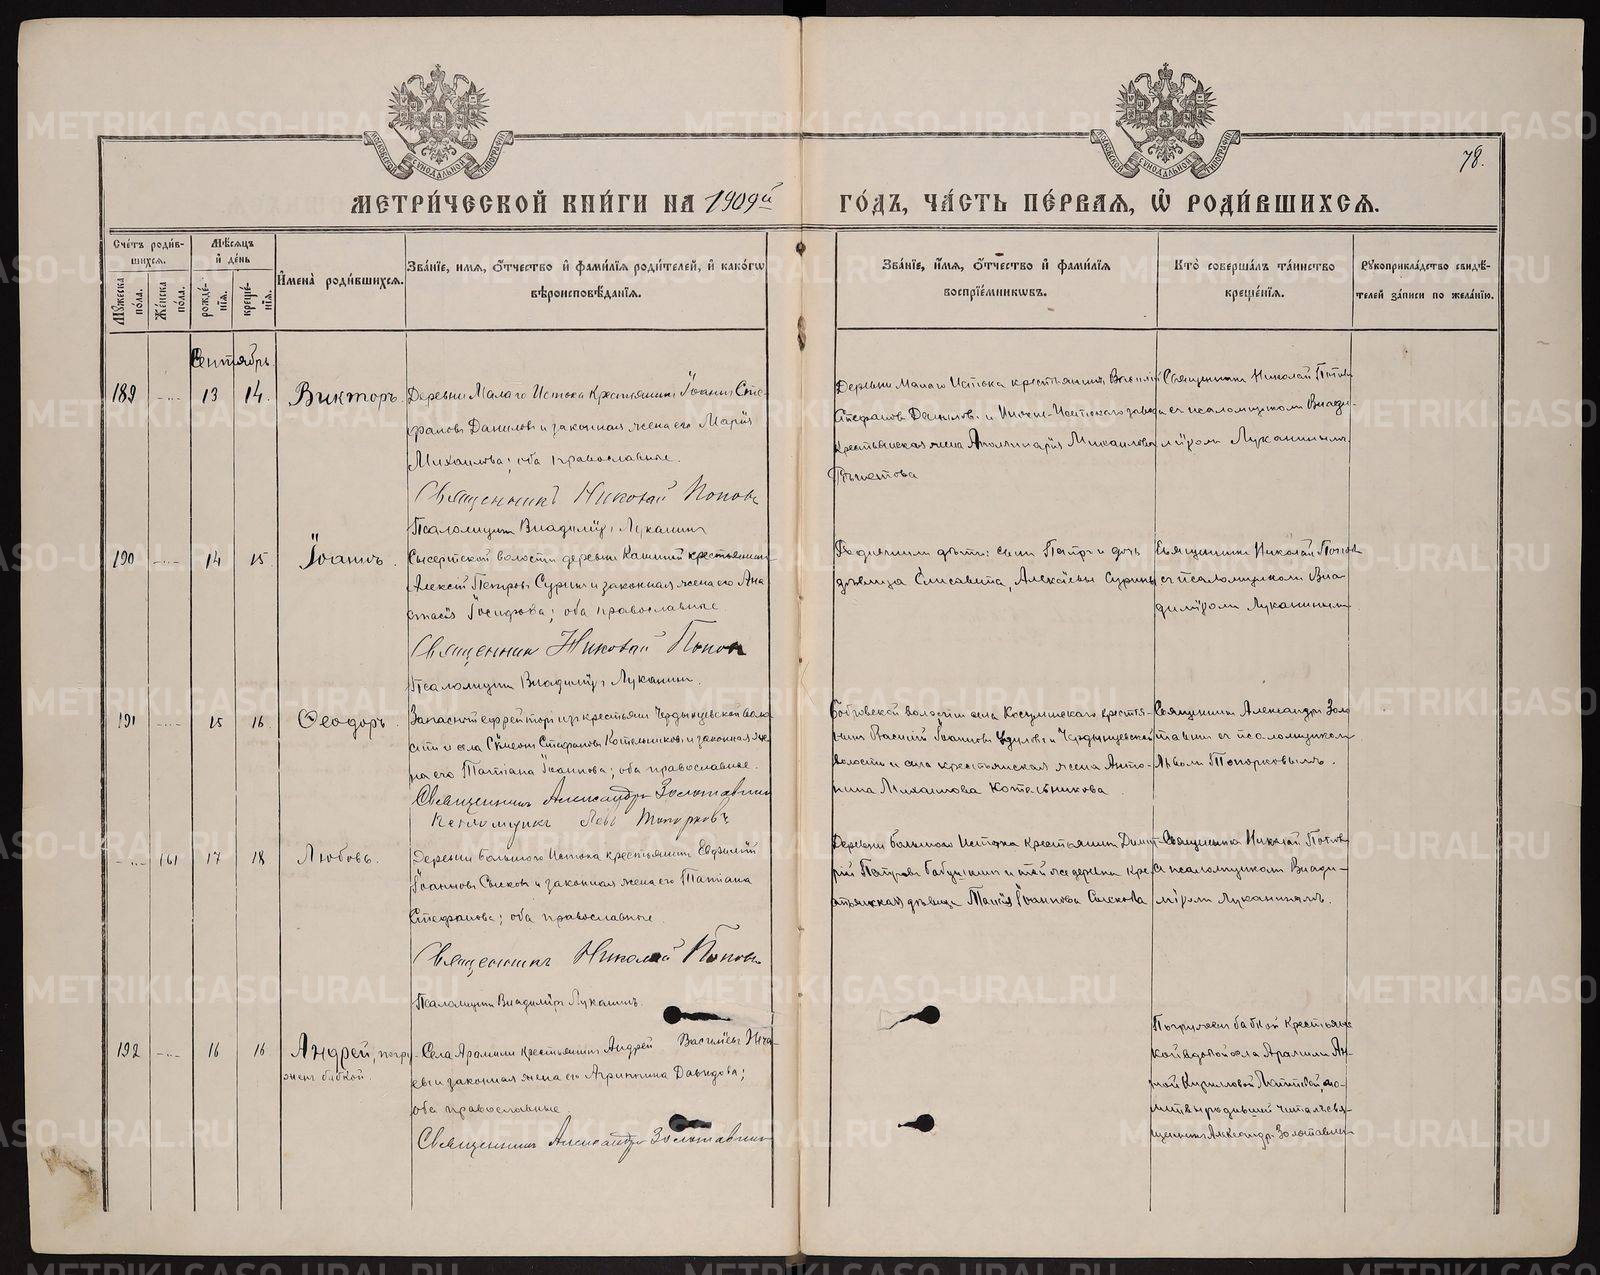 МОСКОВСКОЙ СѴНОДАЛЬНОЙ ТИПОГРАФІИ
МОСКОВСКОЙ СѴНОДАЛЬНОЙ ТИПОГРАФІИ
78.
МЕТРИ́ЧЕСКОЙ КНИ́ГИ НА 1909й ГО́ДЪ, ЧА́СТЬ ПЕ́РВАѦ, Ѡ҆ РОДИ́ВШИХСѦ.
Сче́тъ роди́в-
шихсѧ.
Мꙋ́жеска по́ла.
Же́нска по́ла.
Мѣ́сѧцъ
и҆ де́нь
рожде́-
нїѧ.
креще́-
нїѧ.
И҆мена̀ роди́вшихсѧ.
Зва́нїе, и́мѧ, ѻ҆́тчество и҆ фами́лїѧ роди́телей, и҆ како́гѡ
вѣроисповѣ́данїѧ.
Зва́нїе, и҆́мѧ, ѻ҆́тчество и҆ фами́лїѧ
воспрїе́мникѡвъ.
Кто̀ соверша́лъ та́инство
креще́нїѧ.
Рꙋкоприкла́дство свидѣ́-
телей за́писи по жела́нїю.
Сентябрь
189 13 14. Викторъ.
Деревни Малаго Истока крестьянинъ Іоаннъ Сте-
фановъ Даниловъ и законная жена его Марія
Михаилова; оба православные.
Священникъ Николай Поповъ
Псаломщикъ Владиміръ Луканинъ
Деревни Малаго Истока крестьянинъ Василій
Стефановъ Даниловъ и Нижне-Исетскаго завода
крестьянская жена Аполлинарія Михаилова
Священникъ Николай Поповъ
съ псаломщикомъ Влади-
міромъ Луканинымъ.
190 14 15. Іоаннъ.
Сысертской волости деревни Кашиной крестьянинъ
Алексѣй Петровъ Суринъ и законная жена его Ана-
стасія Іосифова; оба православные
Священникъ Николай Поповъ
Псаломщикъ Владиміръ Луканинъ.
Родившихъ дѣти: сынъ Петръ и дочь
дѣвица Елисавета, Алексѣевы Сурины
Священникъ Николай Поповъ
съ псаломщикомъ Вла-
диміромъ Луканинымъ
191 15 16. Ѳеодоръ.
Запасной ефрейторъ изъ крестьянъ Чердынцевской воло-
сти и села Сѵмеонъ Стефановъ Котельниковъ и законная же-
на его Татіана Іоаннова; оба православные.
Священникъ Александръ Золотавинъ
Псаломщикъ Левъ Топорковъ
волости села Косулинскаго крестья-
нинъ Василій Іоанновъ и Чердынцевской
волости и села крестьянская жена Анто-
нина Михаилова Котельникова.
Священникъ Александръ Золо-
тавинъ съ псаломщикомъ
Львомъ Топорковымъ.
161 17 18 Любовь.
Деревни Большого Истока крестьянинъ Евфимій
Іоанновъ и законная жена его Татіана
Стефанова; оба православные.
Священникъ Николай Поповъ
Псаломщикъ Владиміръ Луканинъ.
Деревни Большого Истока крестьянинъ Димит-
рій Петровъ Бабушкинъ и той же деревни кре-
стьянская дѣвица Іоаннова
Священникъ Николай Поповъ
съ псаломщикомъ Влади-
міромъ Луканинымъ.
192 16 16 Андрей, погру-
женъ бабкой.
Села Арамили крестьянинъ Андрей Васильевъ
и законная жена его Агриппина Давидова;
оба православные
Священникъ Александръ Золотавинъ
Погруженъ бабкой крестьянс-
кой вдовой села Арамили Ан-
ной Кирилловой мо-
литвы родившей читалъ свя-
щенникъ Александръ Золотавинъ
METRIKI.GASO-URAL.RU